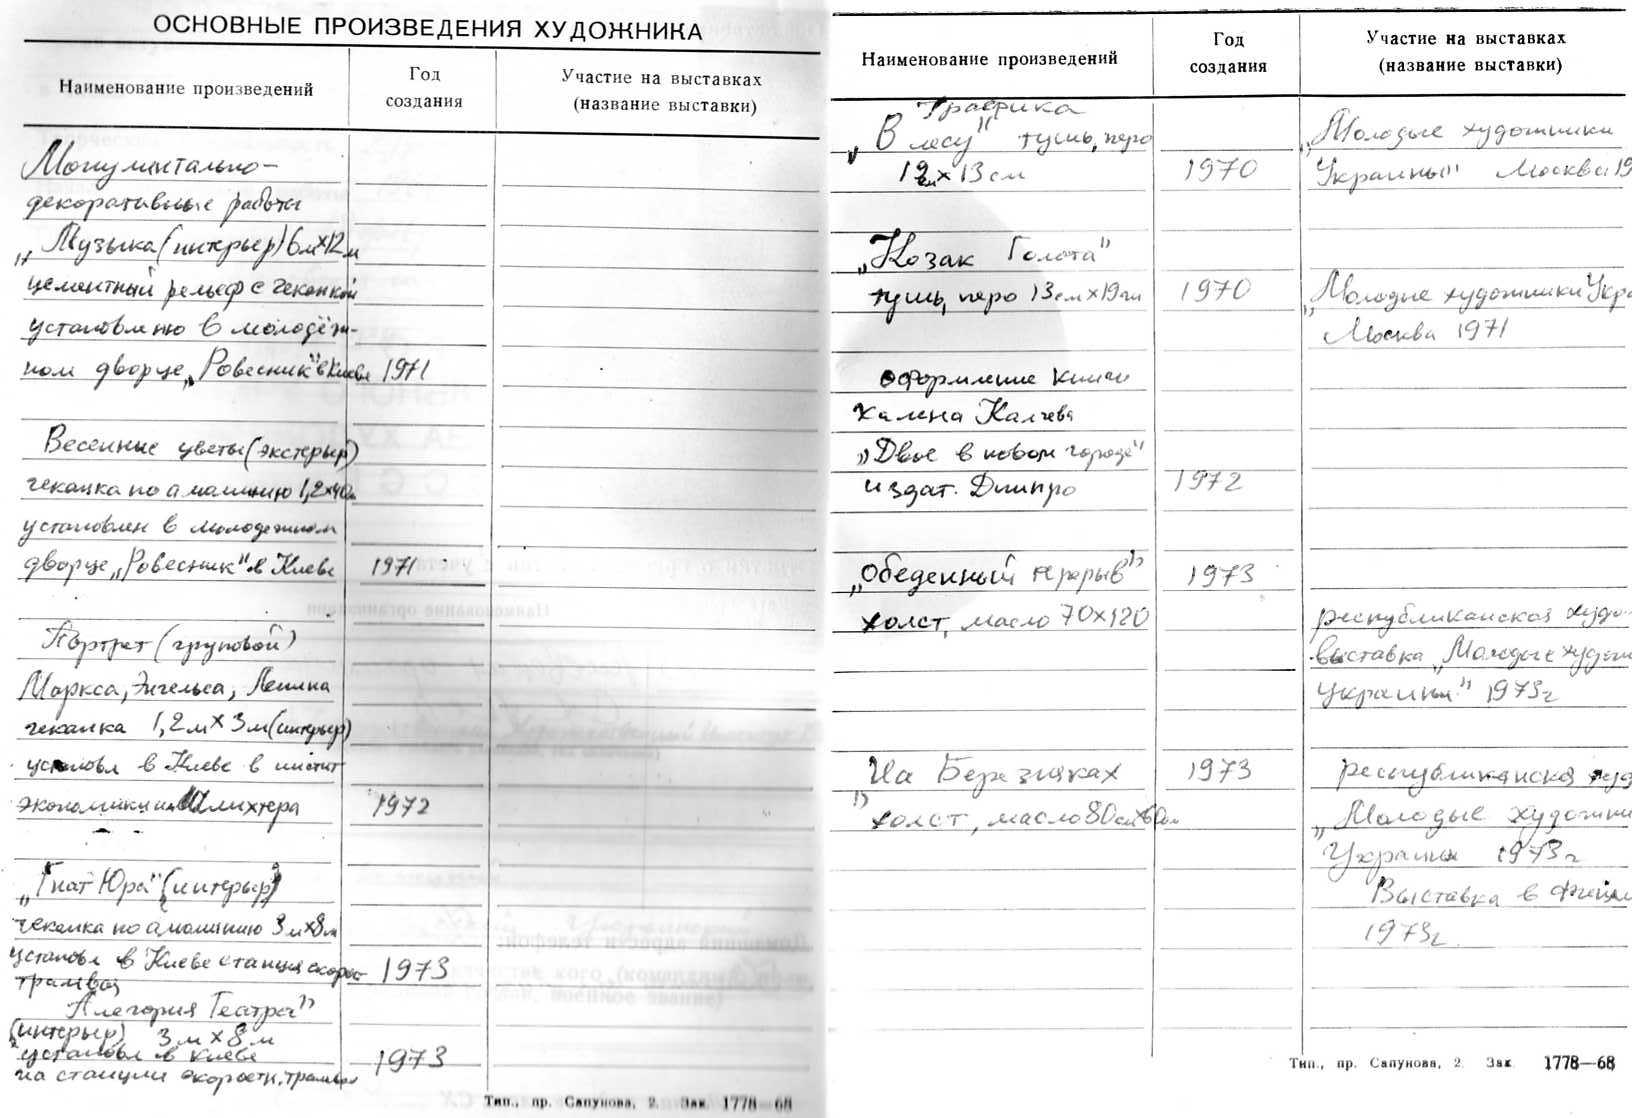 ОСНОВНЫЕ ПРОИЗВЕДЕНИЯ ХУДОЖНИКА
Наименование произведений
Год
создания
Участие на выставках
(название выставки)
Монументально-
декоративные работы
„Музыка (интерьер) 6м×12м
цементный рельеф с чеканкой
установлено в молодёж-
ном дворце „Ровесник" в Киеве 1971
Весенние цветы (экстерьер)
чеканка по алюминию 1,2×40м
установлен в молодежном
дворце „Ровесник" в Киеве 1971
Портрет (груповой)
Маркса, Энгельса, Ленина
чеканка 1,2м×3м (интерьер)
установл в Киеве в инстит
экономики 1972
„Гнат Юра" (интерьер)
чеканка по алюминию 3м×8м
установл в Киеве станция скорос- 1973
трамвая
Алегория Театра"
(интерьер) 3м×8м
установл в Киеве 1973
на станции скоростн. трамвая
Тип., пр. Сапунова, 2. Зак. 1778—68
Наименование произведений
Год
создания
Участие на выставках
(название выставки)
Графика
„В лесу" тушь, перо „Молодые художники
19см×13см 1970 Украины" Москва 19
„Козак Голота"
тушь, перо 13см×19см 1970 „Молодые художники Укра
Москва 1971
оформление книги
Калина Калчева
„Двое в новом городе"
издат. Днипро 1972
„Обеденный перерыв" 1973
холст, масло 70×120 республиканская худо-
выставка „Молодые художн
Украины" 1973г
На Березняках 1973 республиканска худ
" холст, масло 80см×60см „Молодые художни
Украины 1973г
Выставка в
1973г.
Тип., пр. Сапунова, 2. Зак. 1778—68